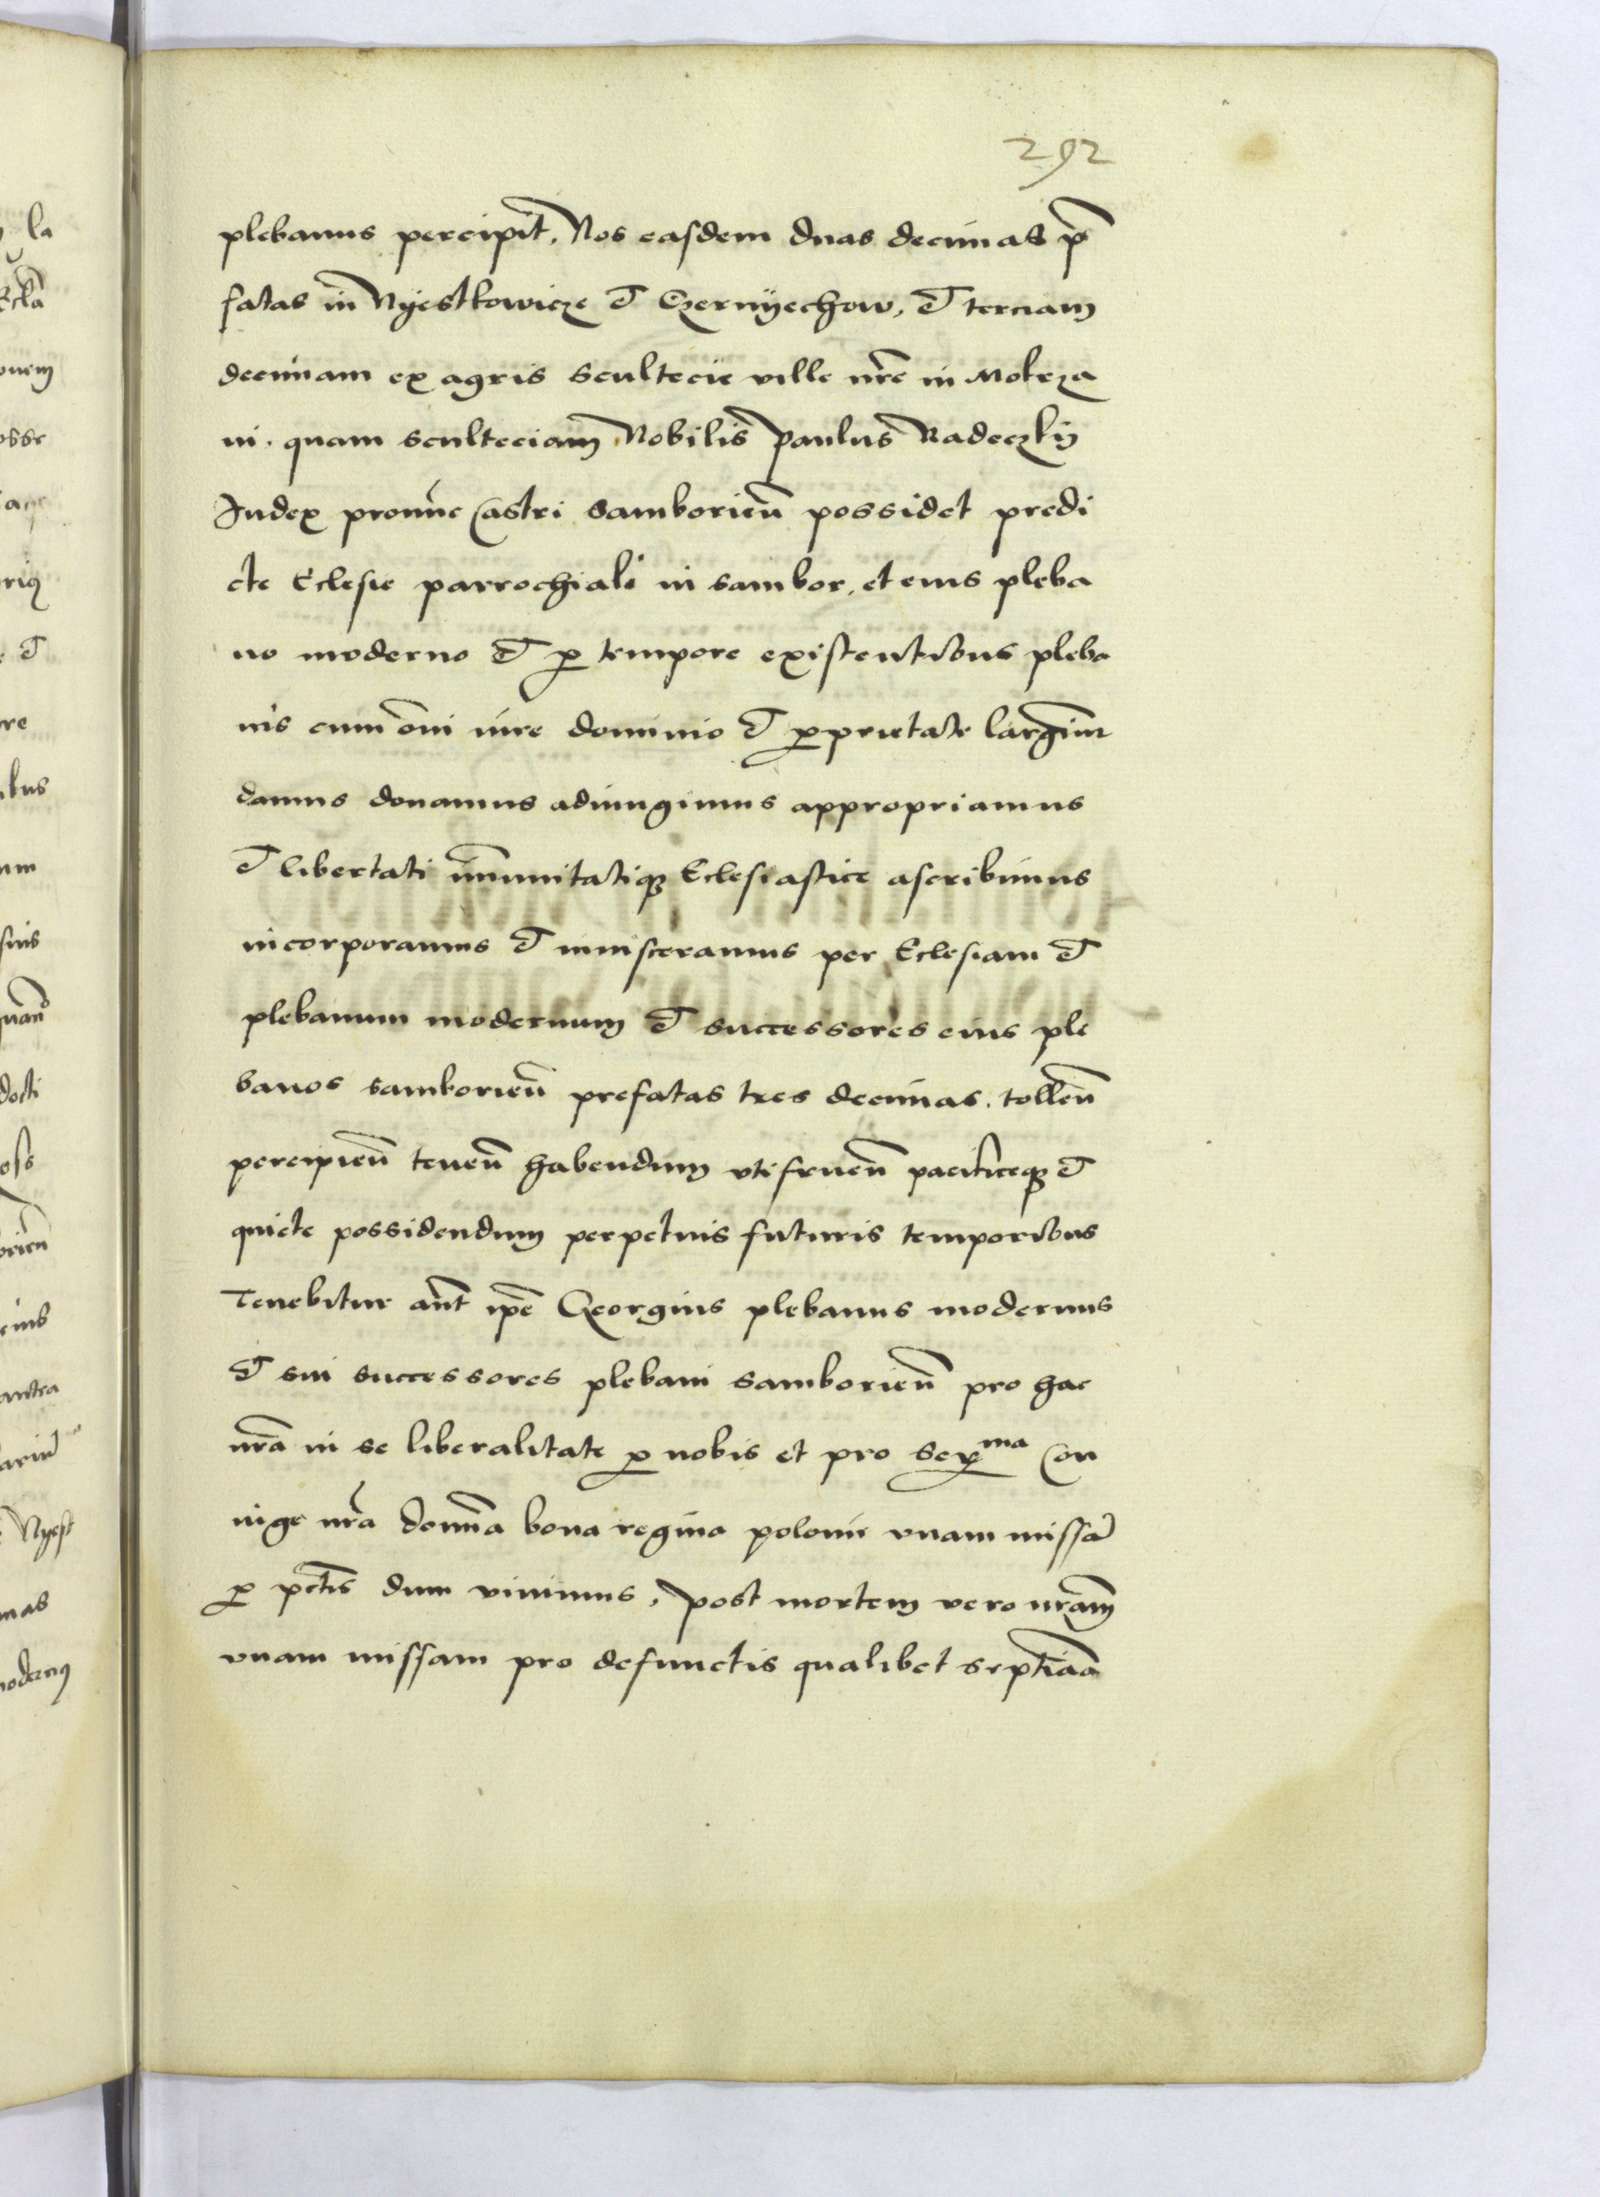 292
plebanus percipit, Nos easdem duas decimas p̄
fatas in Nyestkowicze et Czernyechow, et terciam
decimam ex agris scultecie ville nr̄e in Mokrza
ni. quam sculteciam Nobilis Paulus Radeczky
Judex prouīne Castri Samborien̄ possidet predi
cte Eclesie parrochiali in Sambor, et eius pleba
no moderno et p tempore existentibus pleba
nis cum om̄i iure dominio et p̱prietate largim̄r
damus donamus adiungimus appropriamus
et libertati im̄unitatiq̨ Eclesiastice ascribimus
incorporamus et inuisceramus per Eclesiam et
plebanum modernum et successores eius ple
banos Samborien̄ prefatas tres decimas. tollen̄
percipien̄ tenen̄ habendum vtifruen̄ pacificeq̨ et
quiete possidendum perpetuis futuris temporibus
Tenebitur aūt ip̄e Georgius plebanus modernus
et sui successores plebani Samborien̄ pro hac
nr̄a in se liberalitate p nobis et pro Ser^ma Con
iuge nr̄a domīa bona regina polonie vnam missā
p pctīs dum viuimus, post mortem vero nr̄am
vnam missam pro defunctis qualibet septīana